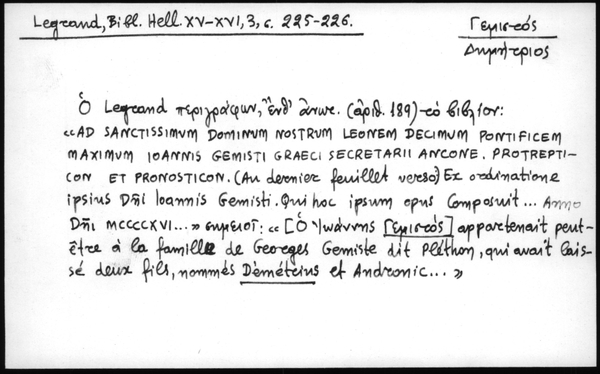 Legrand, Bibl. Hell. XV-XVI, 3, σ. 225-226.
Γεμιστός
Δημήτριος
Ὁ Legrand περιγράφων, "ἔνθ' ἄνωτ. (ἀριθ. 189) τό βιβλίον:
«AD SANCTISSIMVM DOMINVM NOSTRVM LEONEM DECIMVM PONTIFICEM
MAXIMVM IOANNIS GEMISTI GRAECI SECRETARII ANCONE. PROTREPTI-
CON ET PRONOSTICON. (Au dernier feuillet verso) Ex ordinatione
ipsius Dñi Ioannis Gemisti. Qui hoc ipsum opus Composuit... Anno
Dñi MCCCCXVI...» σημειοῖ: «[Ὁ Ἰωάννης Γεμιστός] appartenait peut-
être à la famille de Georges Gemiste dit Pléthon, qui avait lais-
sé deux fils, nommés Démétrius et Andronic...»